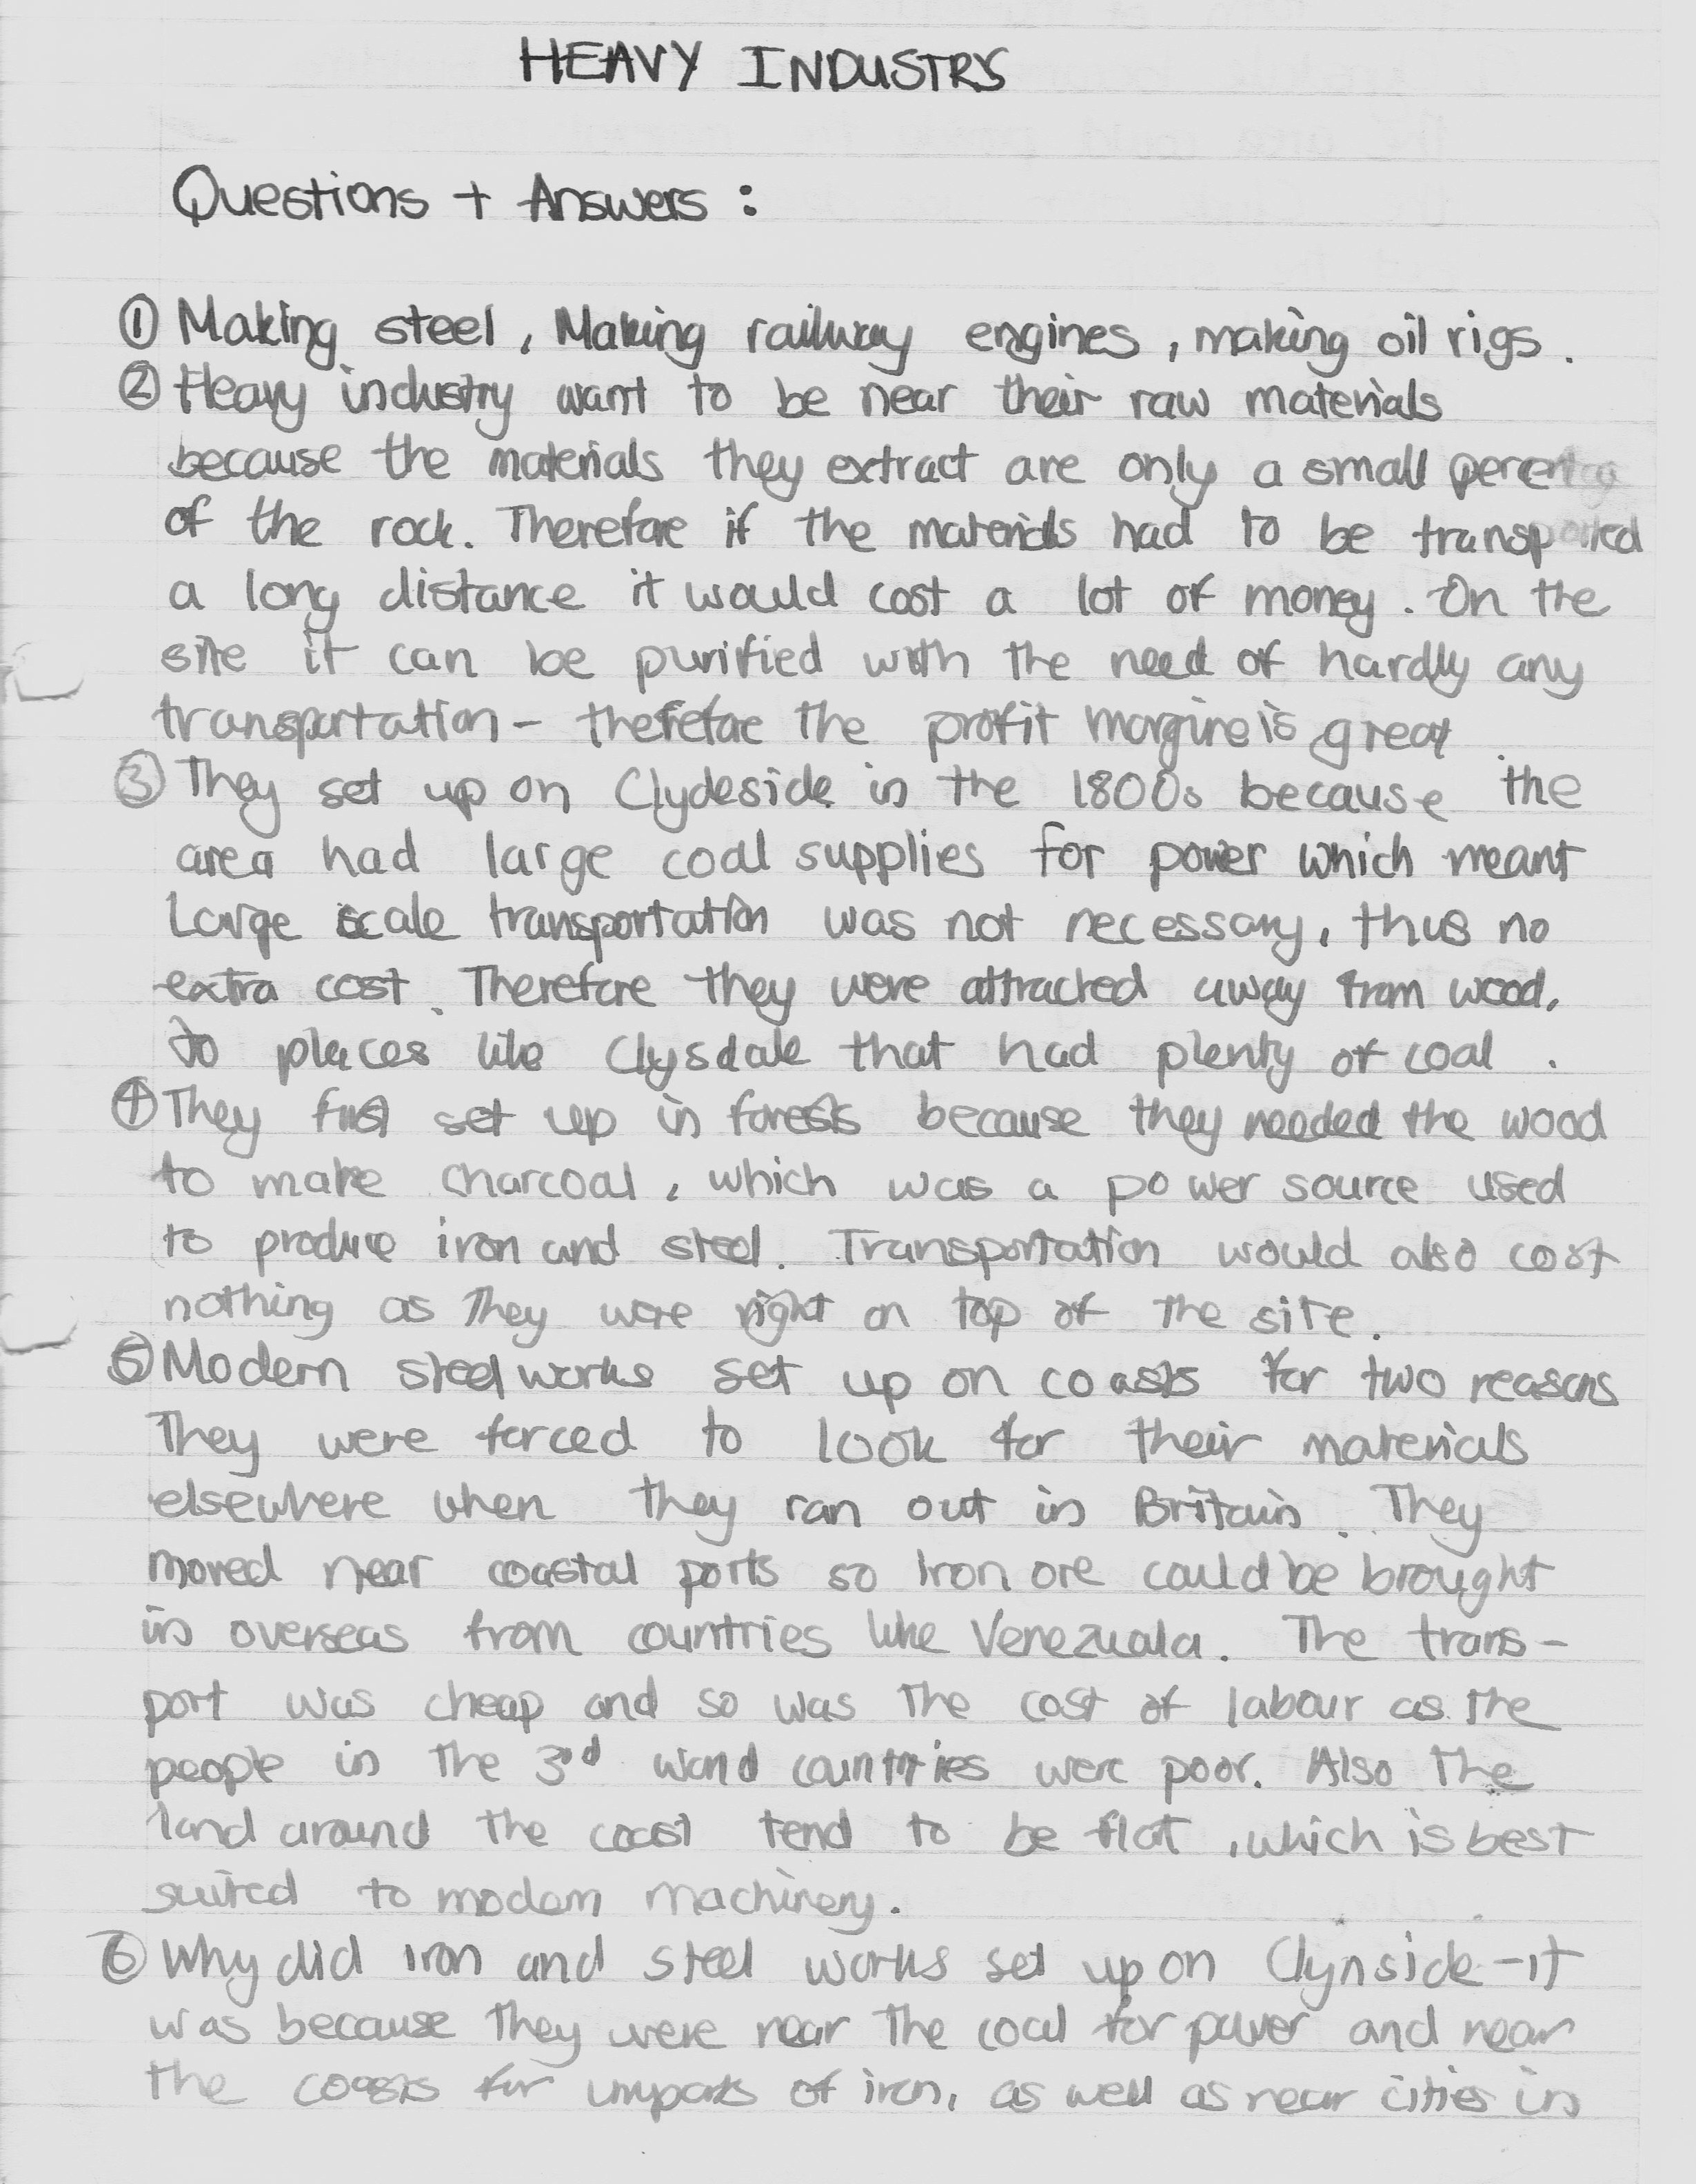 HEAVY INDUSTRY
Questions + Answers :
① Making steel, Making railway engines, making oil rigs.
② Heavy industry want to be near their raw materials
because the materials they extract are only a small
of the rock. Therefore if the materials had to be transported
a long distance it would cost a lot of money. On the
site it can be purified with the need of hardly any
transportation - therefore the profit margine is great
③ They set up on Clydeside in the 1800s because the
area had large coal supplies for power which meant
Large scale transportation was not necessary, thus no
extra cost. Therefore they were attracted away from wood,
to places like Clysdale that had plenty of coal.
④ They first set up in forests because they needed the wood
to make charcoal, which was a power source used
to produce iron and steel. Transportation would also cost
nothing as They were right on top of the site.
⑤ Modern steelworks set up on coasts for two reasons
They were forced to look for their materials
elsewhere when they ran out in Britain. They
moved near coastal ports so Iron ore could be brought
in overseas from countries like Venezuala. The trans-
port was cheap and so was the cost of labour as the
people in the 3rd world countries were poor. Also the
land around the coast tend to be flat, which is best
suited to modern machinery.
⑥ Why did iron and steel works set up on Clynside - it
was because they were near the coal for power and near
the coasts for imports of iron, as well as near cities in